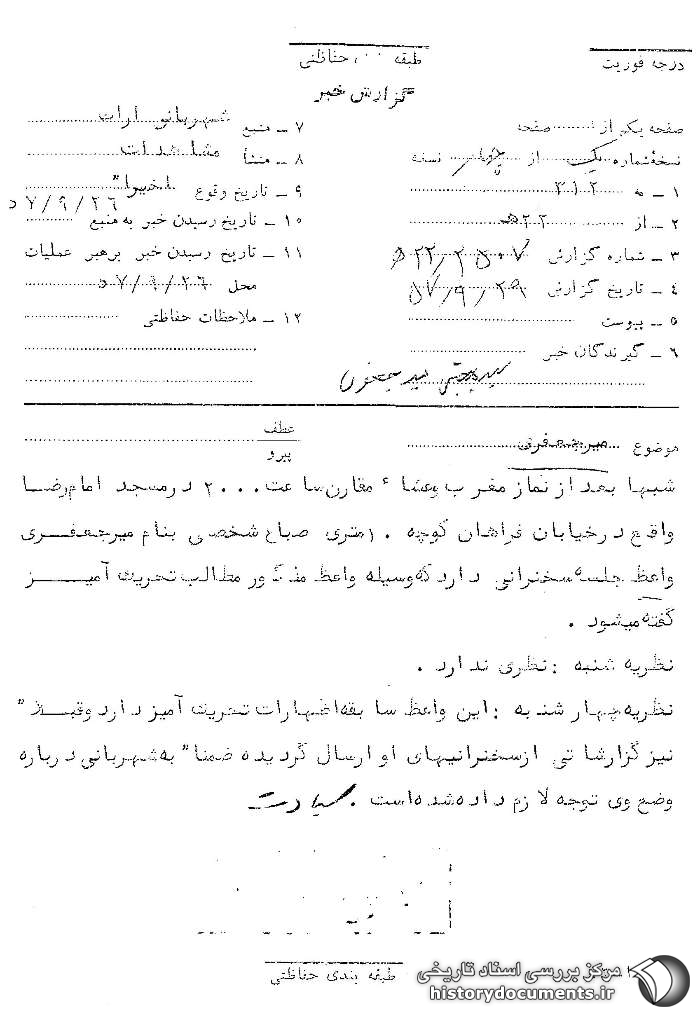 درجه فوریت
طبقه حفاظتی
گزارش خبر
صفحه یکم از ۱ صفحه
نسخه شماره یک از چهار نسخه
۱ ـ به ۳۱۲
۲ ـ از ۲۲ﻫ
۳ ـ شماره گزارش
۴ ـ تاریخ گزارش ۵۷/۹/۲۹
۵ ـ پیوست
۶ ـ گیرندگان خبر
۷ ـ منبع شهربانو ارات
۸ ـ منشأ مشاهدات
۹ ـ تاریخ وقوع اخیرا"
۱۰ ـ تاریخ رسیدن خبر به منبع ۵۷/۹/۲۶
۱۱ ـ تاریخ رسیدن خبر برهبر عملیات
محل ۵۷/۹/۲۶
۱۲ ـ ملاحظات حفاظتی
موضوع میرجعفری
عطف
پیرو
شبها بعد از نماز مغرب وعشاء مقارن ساعت ۲۰۰۰ در مسجد امام رضا
واقع در خیابان فراهان کوچه ۱۰ متری صباغ شخصی بنام میرجعفری
واعظ جلسه سخنرانی دارد که وسیله واعظ مذکور مطالب تحریک آمیز
گفته میشود .
نظریه شنبه : نظری ندارد .
نظریه چهارشنبه : این واعظ سابقه اظهارات تحریک آمیز دارد وقبلا"
نیز گزارشاتی از سخنرانیهای او ارسال گردیده ضمنا" به شهربانی درباره
وضع وی توجه لازم داده شده است . سیادت
طبقه بندی حفاظتی
مرکز بررسی اسناد تاریخی
historydocuments.ir